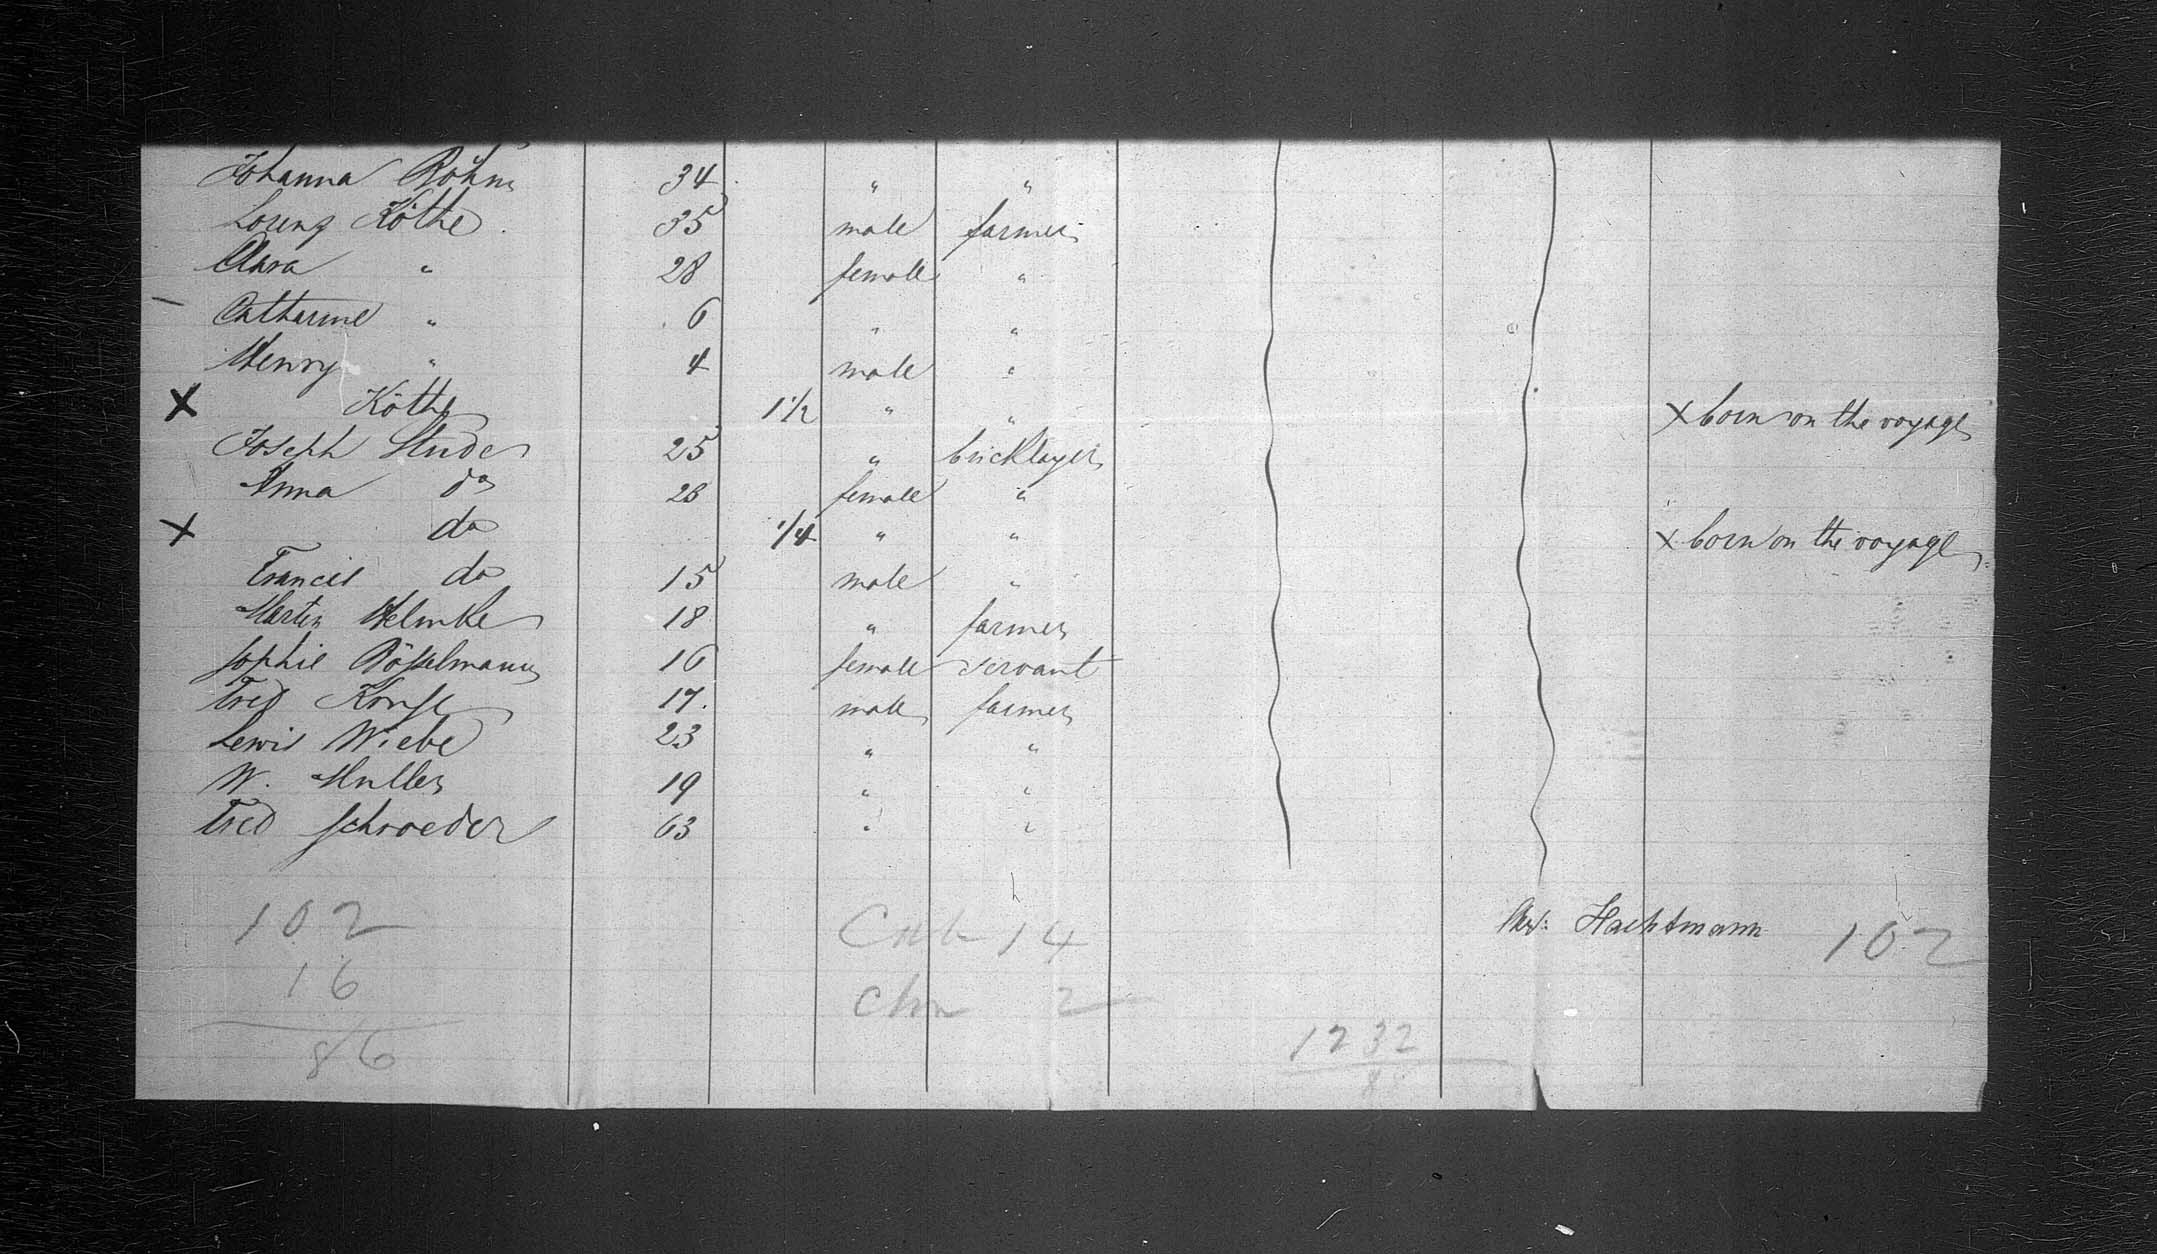 Johanna Röhm 34 " "
Lorenz Köthe 35 male farmer
Clara " 28 female "
Catharine " 6 " "
Henry " 4 male "
X Köthe 1 1/2 " " X born on the voyage
Joseph Studer 25 " bricklayer
Anna do 28 female "
X do 1/4 " " X born on the voyage
Francis do 15 male "
Martin Helmke 18 " farmer
Sophie Bösselmann 16 female servant
Fred Kruse 17. male farmer
Lewis Wiebe 23 " "
W. Muller 19 " "
Fred Schroeder 63 " "
102 14 Hachtmann 102
16 2
86 1232